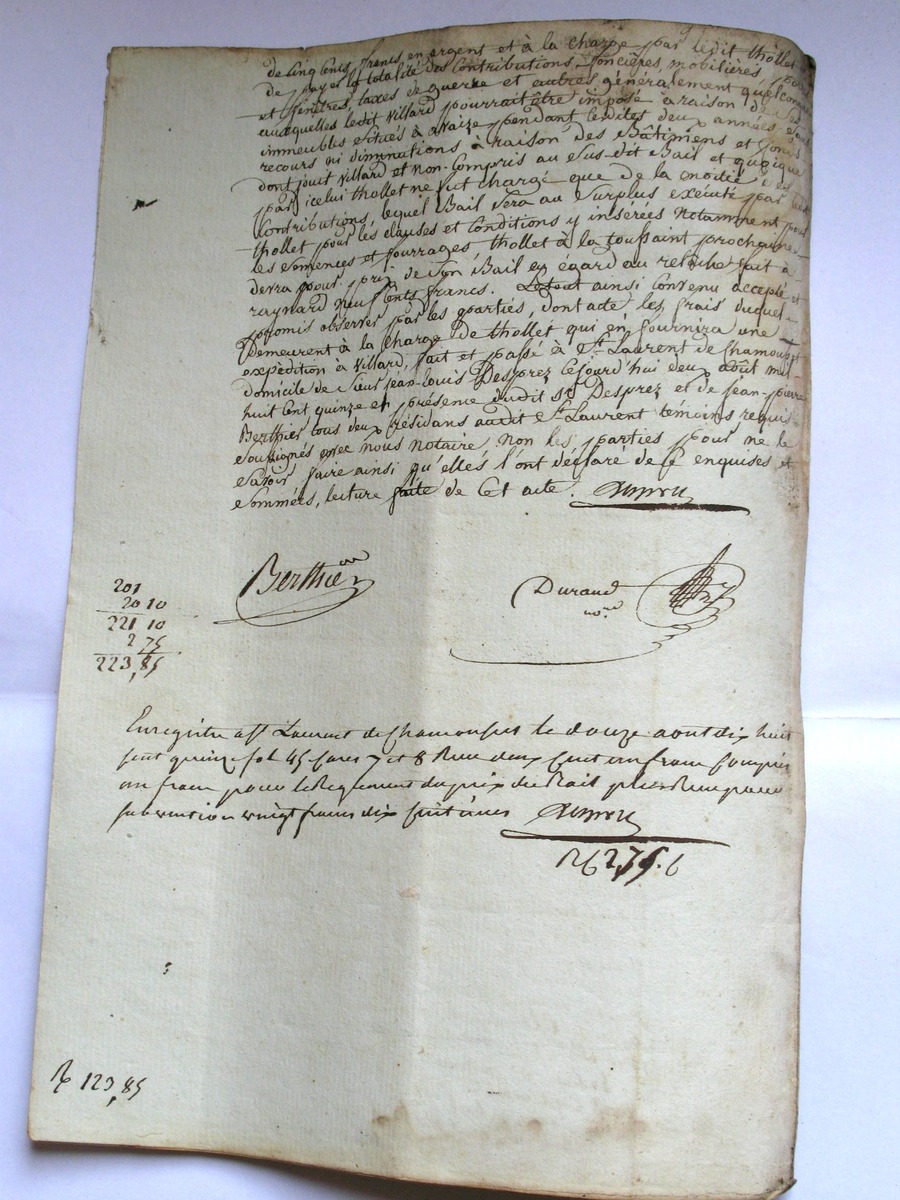 de cinq cents francs en argent et à la charge par ledit thollet
de payer la totalité des contributions foncières, mobilières, portes
et fenêtres, taxes de guerre et autres généralement quelconques
auxquelles ledit Villard pourrait être imposé à raison de ses
immeubles situés à avaize pendant lesdites deux années sans
recours ni diminutions à raison des Bâtimens et fonds
dont jouit Villard et non-Compris au sus-dit Bail et quoique
par icelui thollet ne fut chargé que de la moitié des
Contributions, lequel Bail sera au surplus exécuté par ledit
thollet pour les clauses et conditions y insérées notamment pour
les semences et fourrages, thollet à la toussaint prochaine
devra pour prix de son Bail eu égard au relâche fait à
raynard neuf cents francs. Le tout ainsi convenu accepté et
promis observer par les parties, dont acte les frais duquel
Demeurent à la charge de thollet qui en fournira une
expédition à Villard, fait et passé à St. Laurent de Chamousset
domicile de sieur jean-Louis Desprez cejourd'hui deux août mil
huit cent quinze en présence dudit sr. Desprez et de jean-pierre
Berthier tous deux résidans audit St. Laurent témoins requis
soussignés avec nous notaire non les parties pour ne le
savoir faire ainsi qu'elles l'ont déclaré de ce enquises et
sommées, lecture faite de cet acte.
Berthier
Durand
nore.
201
20 10
221 10
2 75
223,85
Enregistré à St Laurent de Chamousset le douze aout dix huit
cent quinze fol 45 cares 7 et 8 Reçu deux cent un franc compris
un franc pour le Reglement du prix du Bail plus Reçu pour
subvention vingt francs dix centimes
2,75.6
123,85